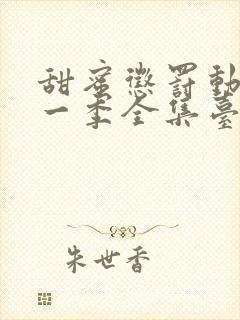 甜蜜懲罰動
一季全集臺
朱世香